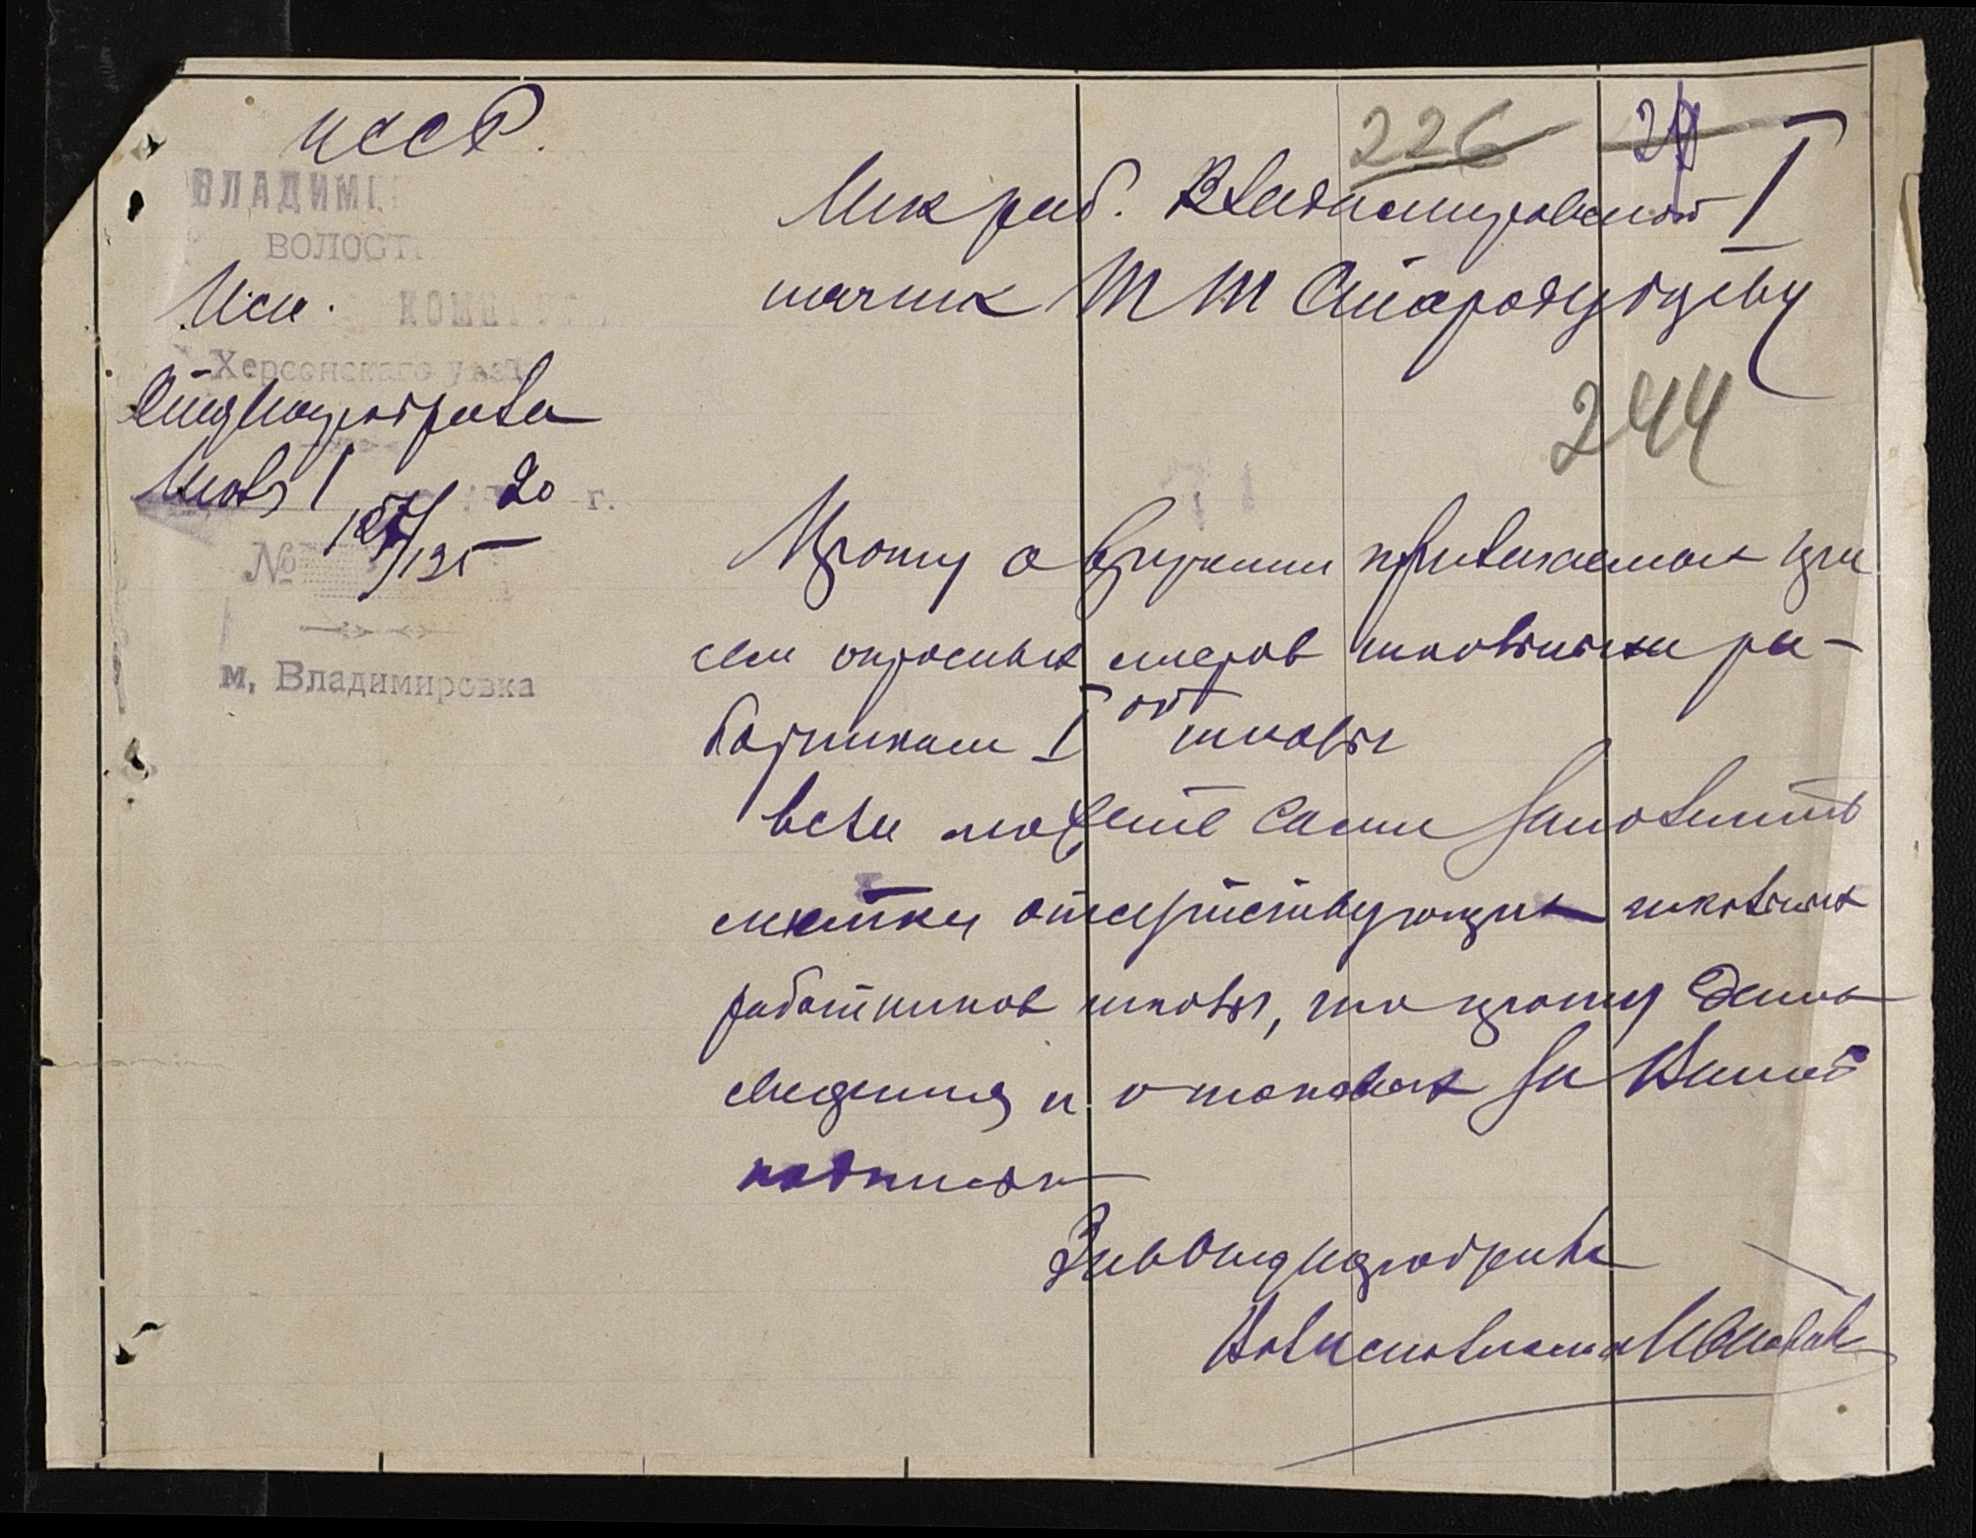 УССР.
ВЛАДИМИ
ВОЛОСТ
Исп.
КОМИТ
Херсонскаго уезд
Отд Наробраза
Июля 1 20 г.
№ 127/135
м. Владимировка
226
27
Шк раб. Владимировской I
шк Т Т Стародубцеву
244
Прошу о вручении прилагаемых при
сем опросных листов школьным ра-
ботникам I ой школы
Если можете сами заполнить
листки отсутствующих школьных
работников школы, то прошу дать
сведения и о таковых за Вашей
подписью
Зав Отд Наробраза